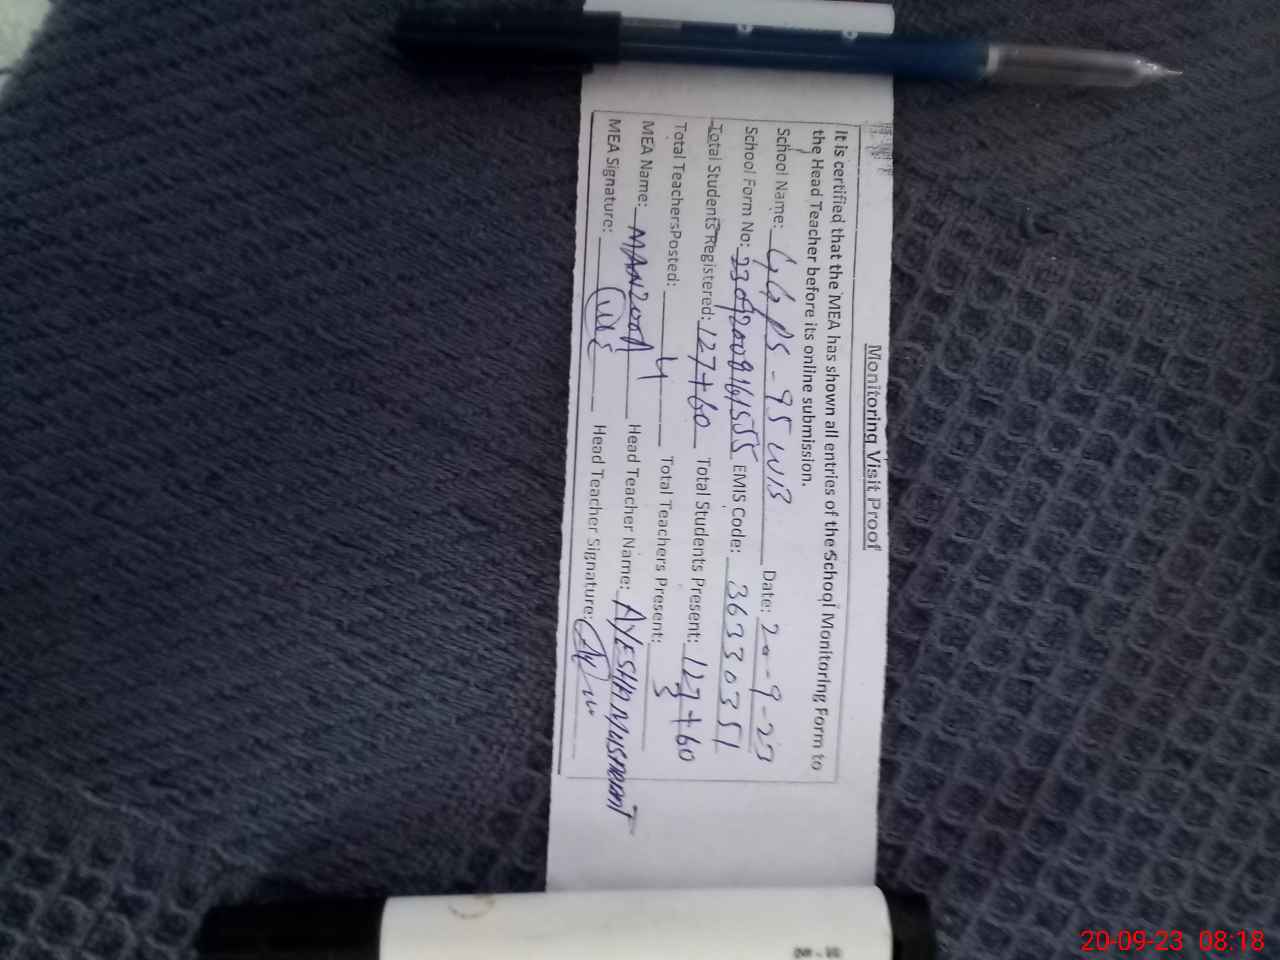 Monitoring Visit Proof
It is certified that the MEA has shown all entries of the School Monitoring Form to
the Head Teacher before its online submission.
School Name: GGPS - 95 WB Date: 20-9-23
School Form No: EMIS Code: 36330351
Total Students Registered: 127+60 Total Students Present: 127+60
Total TeachersPosted: 4 Total Teachers Present: 3
MEA Name: MANZOOR Head Teacher Name: AYESHA
MEA Signature: Head Teacher Signature:
20-09-23 08:18